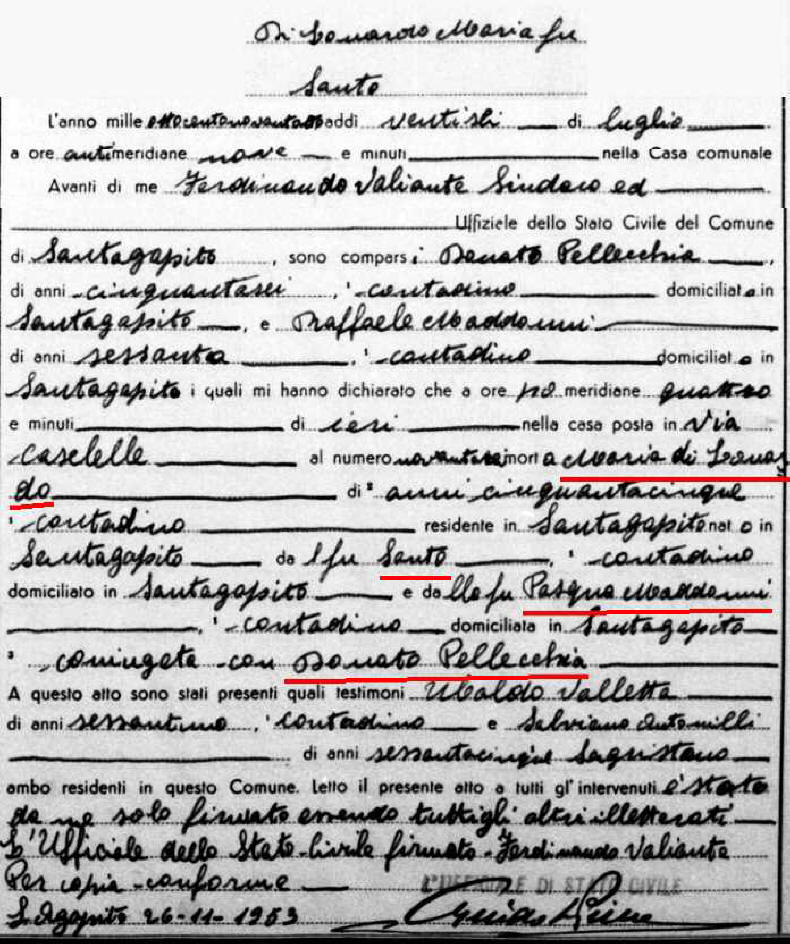 Di Leonardo Maria fu
Santo
L'anno mille ottocentonovantotto addi ventisei di luglio
a ore antimeridiane nove e minuti nella Casa comunale
Avanti di me Ferdinando Valiante Sindaco ed
Uffiziele dello Stato Civile del Comune
di Santagapito, sono comparsi Donato Pellecchia,
di anni cinquantasei, contadino domiciliato in
Santagapito, e Raffaele Maddonni
di anni sessanta, contadino domiciliato in
Santagapito i quali mi hanno dichiarato che a ore po meridiane quattro
e minuti di ieri nella casa posta in via
Caselle al numero morta Maria di Lonar
do di anni cinquantacinque
contadino residente in Santagapito nato in
Santagapito da l fu Santo, contadino
domiciliato in Santagapito e da lla fu Pasqua Maddonni
, contadino domiciliata in Santagapito
coniugata con Donato Pellecchia
A questo atto sono stati presenti quali testimoni Ubaldo Valletta
di anni sessantuno, contadino e Salviano Antonilli
di anni sessantacinque Sagristano
ambo residenti in questo Comune. Letto il presente atto a tutti gl'intervenuti è stato
da me solo firmato essendo tutti gli altri illetterati
L'Ufficiale dello Stato Civile firmato - Ferdinando Valiante
Per copia conforme
L'UFFICIALE DI STATO CIVILE
S. Agapito 26-11-1953